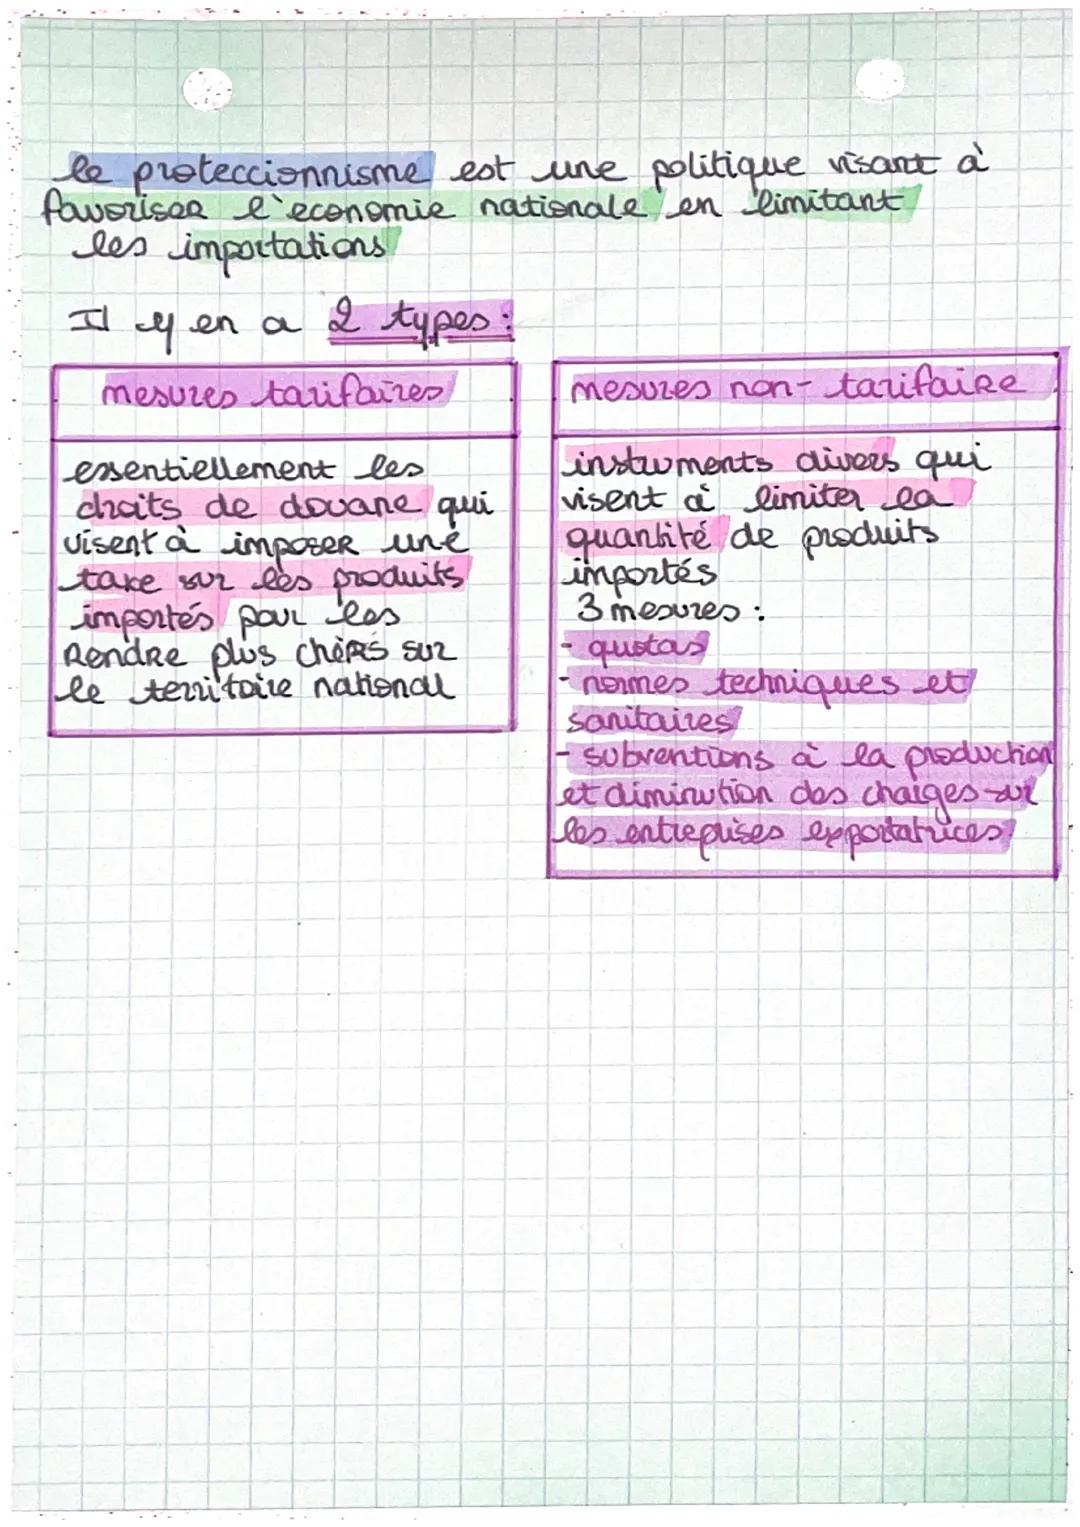 le proteccionnisme est une politique visant à
favoriser l'economie nationale en limitant
les importations
Il y en a 2 types :
mesures tarifaires
essentiellement les
droits de douane qui
visent à imposer une
taxe sur les produits
importés pour les
Rendre plus chers sur
le territoire national
mesures non-tarifaire
instruments divers qui
visent à limiter la
quantité de produits
importés
3 mesures :
- quotas
- normes techniques et
sanitaires
- subventions à la production
et diminution des charges sur
les entreprises exportatrices.